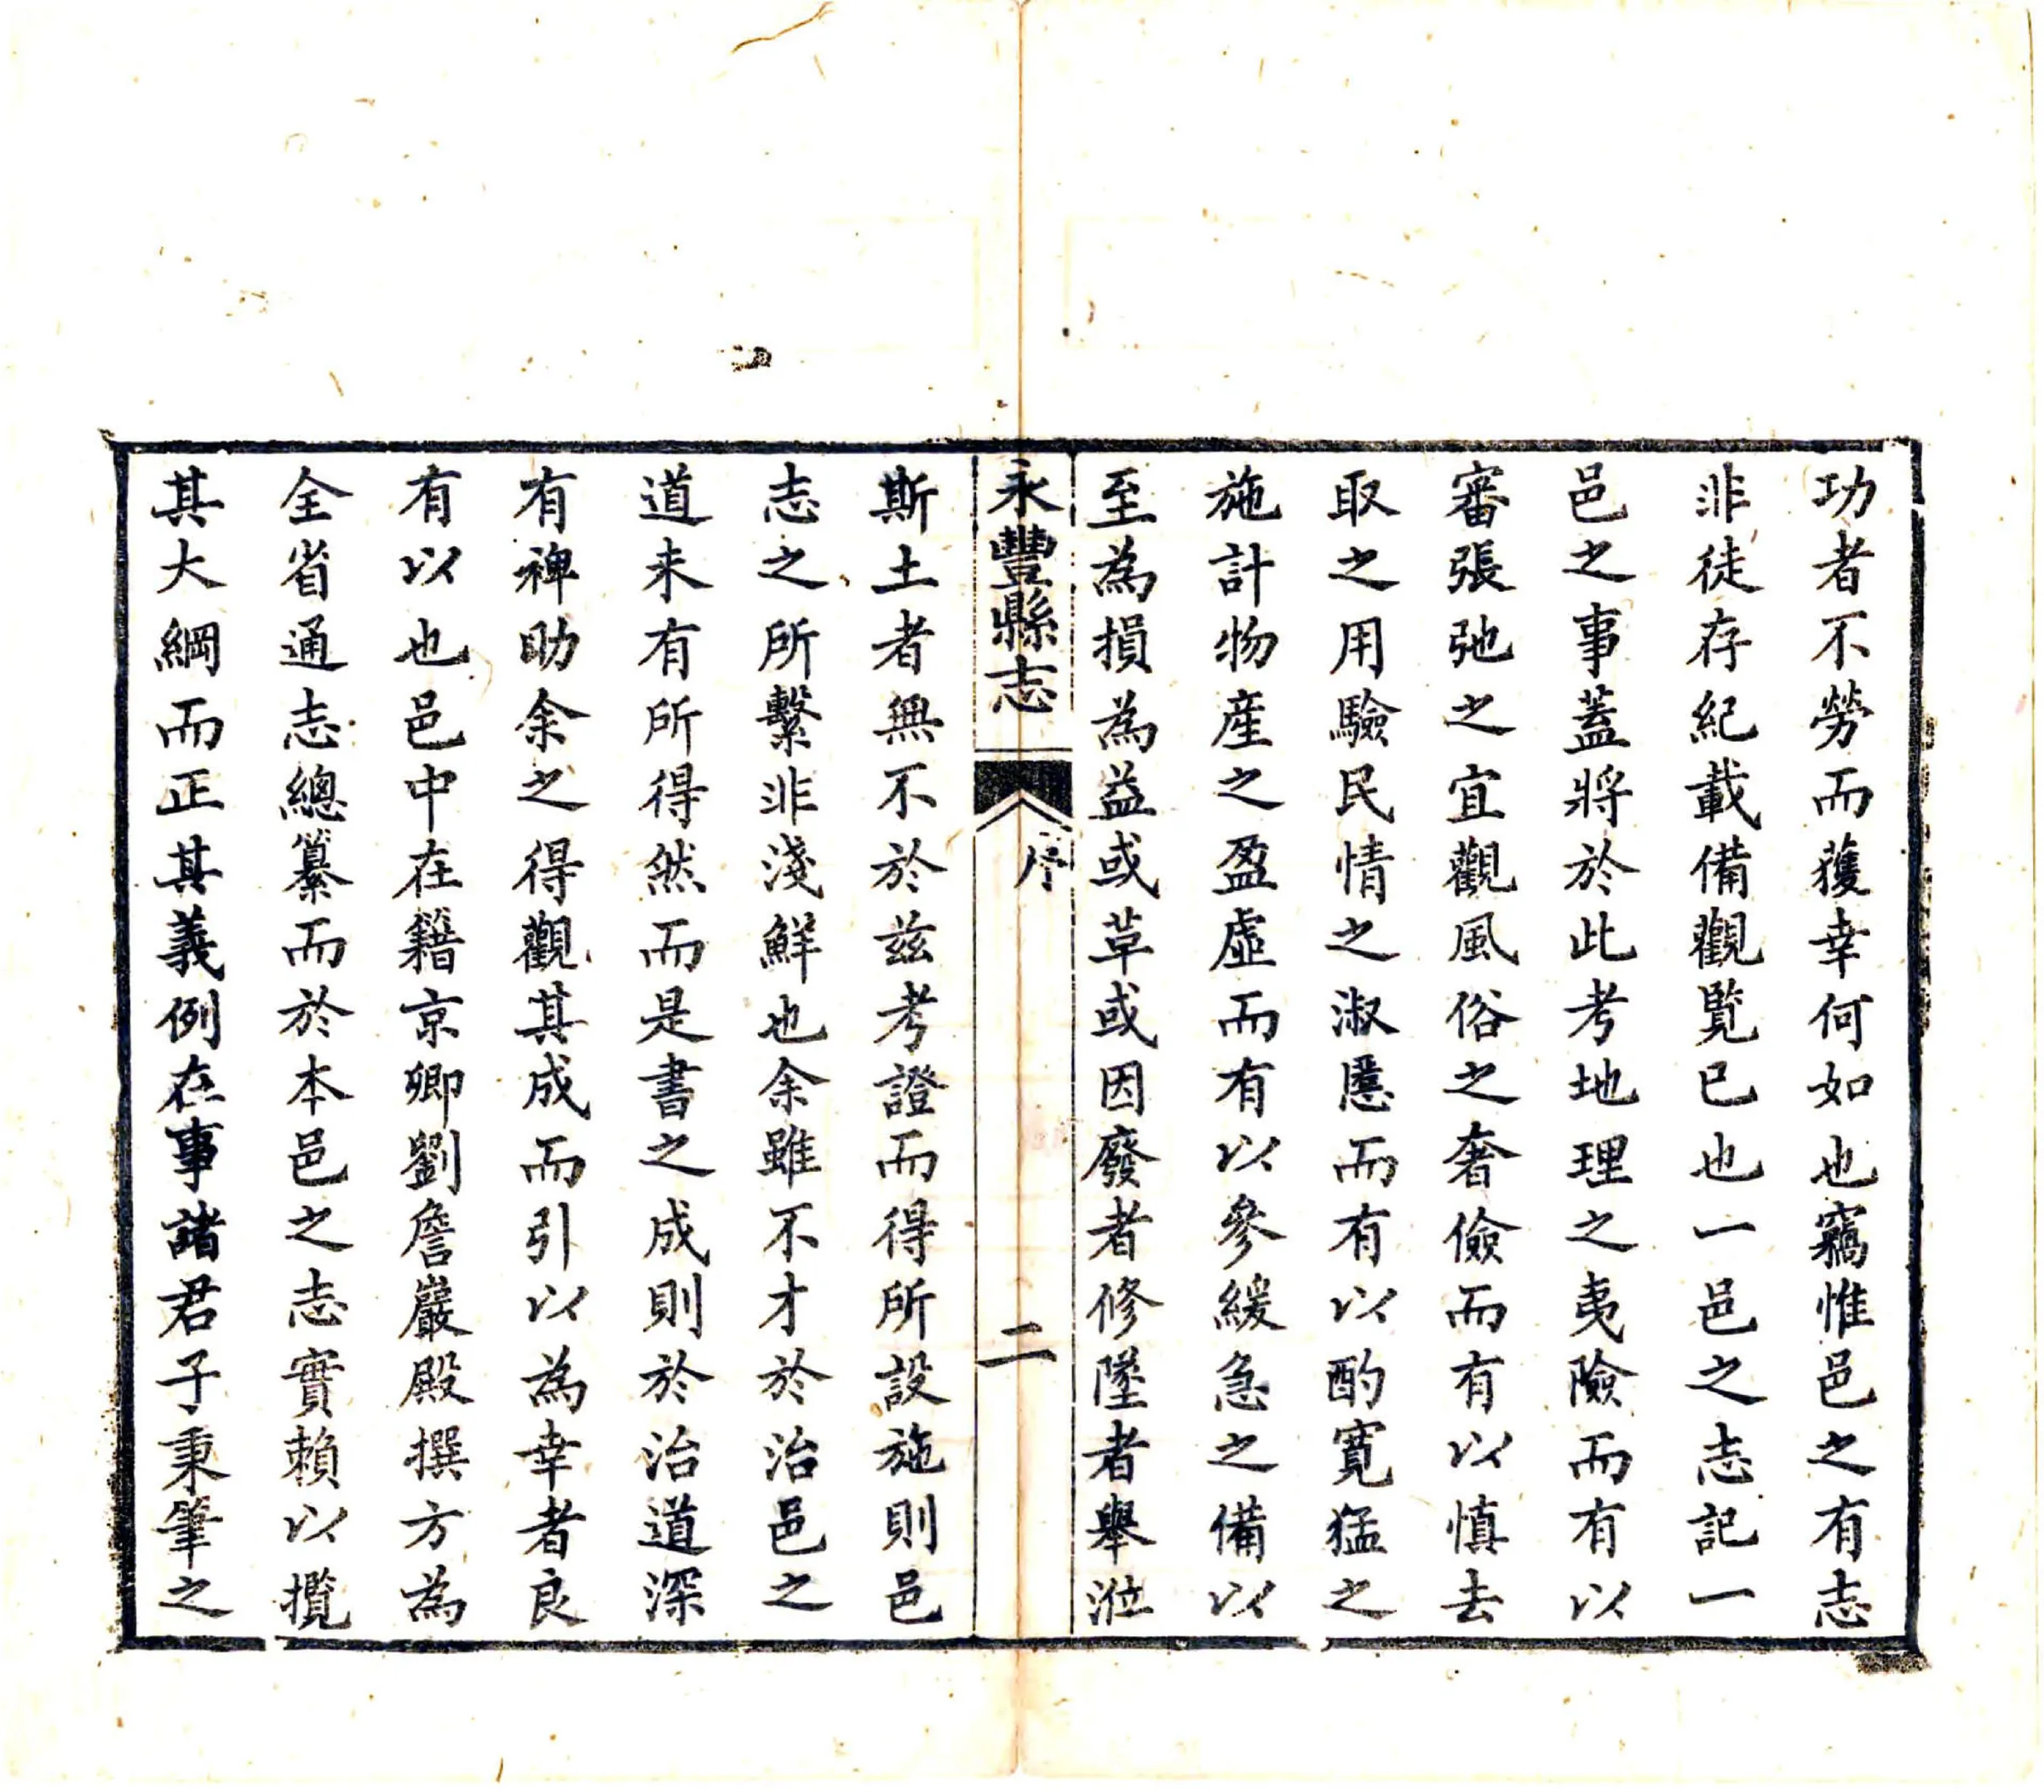 功者不勞而獲幸何如也竊惟邑之有志
非徒存紀載備觀覽已也一邑之志記一
邑之事蓋將於此考地理之夷險而有以
審張弛之宜觀風俗之奢儉而有以慎去
取之用驗民情之淑慝而有以酌寬猛之
施計物產之盈虛而有以參緩急之備以
至為損為益或草或因廢者修墜者舉涖
永豐縣志
序
二
斯土者無不於茲考證而得所設施則邑
志之所繫非淺鮮也余雖不才於治邑之
道未有所得然而是書之成則於治道深
有裨助余之得觀其成而引以為幸者良
有以也邑中在籍京卿劉詹巖殿撰方為
全省通志總纂而於本邑之志實賴以攬
其大綱而正其義例在事諸君子秉筆之